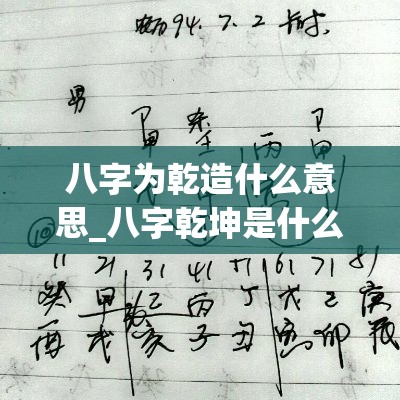 94.7.2
男
丙
八字为乾造什么意
思_八字乾坤是什么
11 21 31 41 51 61 71 81
癸 甲 乙 丙 丁 戊 己 庚
酉 戌 亥 子 丑 寅 卯 辰